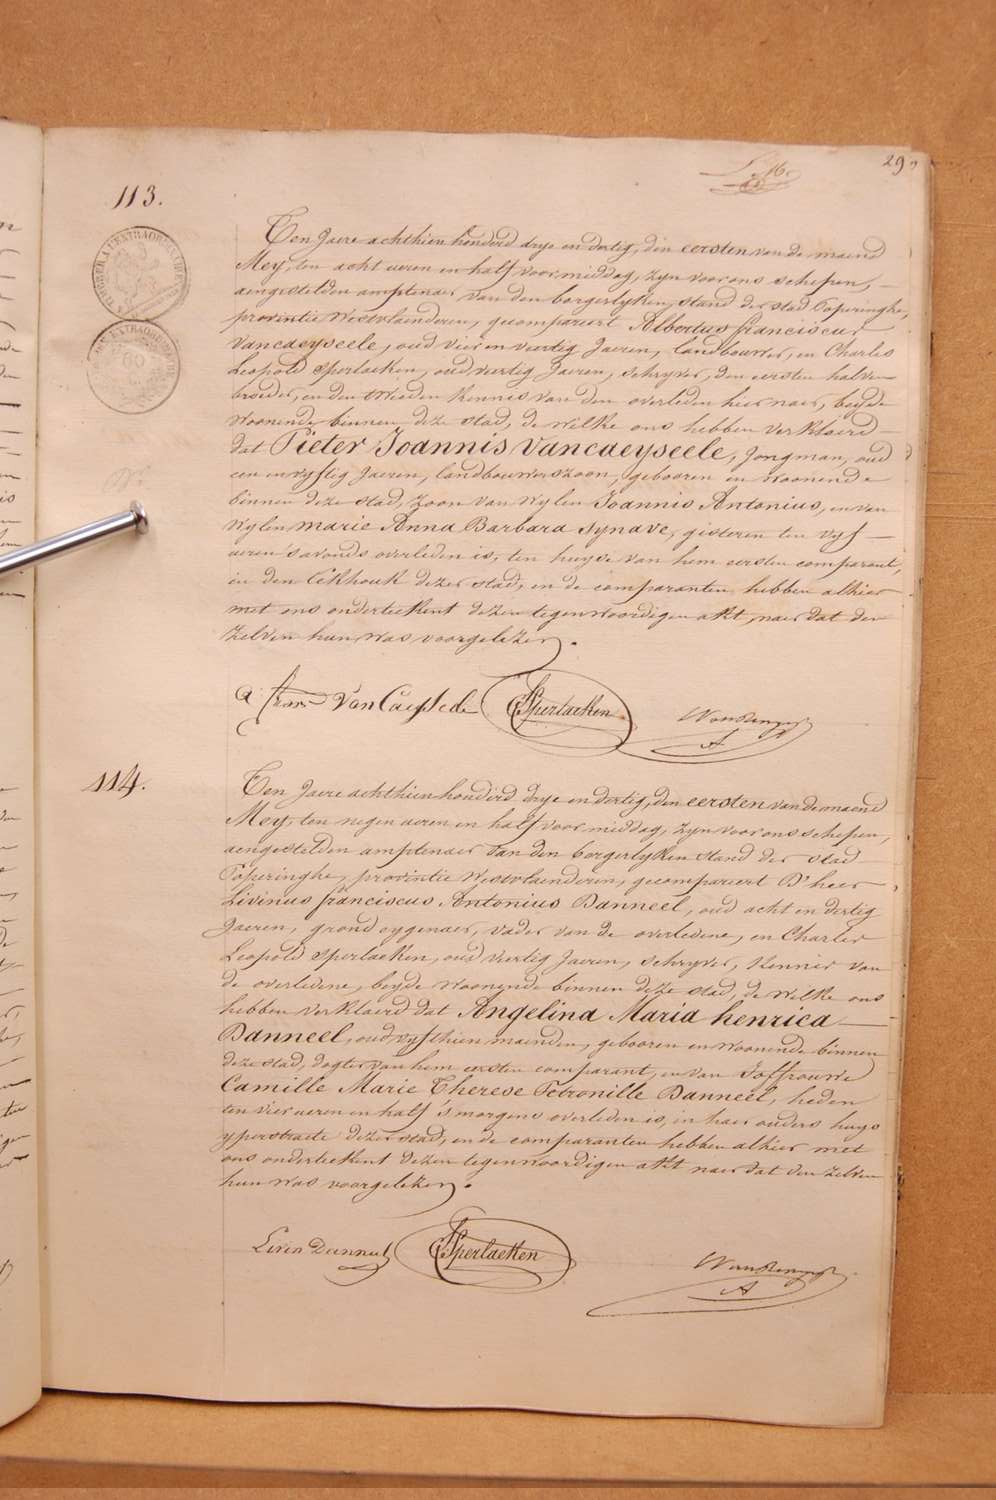 29
113.
Ten Jaere achthien honderd drye en dertig, den eersten van de maend
Mey, ten acht ueren en half voormiddag, zyn voor ons schepen,
aengestelden amptenaer van den borgerlyken stand der stad Poperinghe,
provintie Westvlaenderen, gecompareert Albertus franciscus
Vancaeyseele, oud vier en veertig Jaeren, landbouwer, en Charles
Leopold Sperlaeken, oud veertig Jaeren, schryver, den eersten halven
broeder, en den tweeden kennis van den overleden hier naer, beyde
woonende binnen deze stad, de welke ons hebben verklaerd
dat Pieter Joannis Vancaeyseele, Jongman, oud
een en vyftig Jaeren, landbouwerszoon, gebooren en woonende
binnen deze stad, zoon van wylen Joannis Antonius, en van
wylen marie Anna Barbara Synave, gisteren ten vyf
ueren s'avonds overleden is, ten huyse van hem eersten comparant,
in den Eekhouk dezer stad, en de comparanten hebben alhier
met ons onderteekent dezen tegenwoordigen akt, naer dat den
zelven hun was voorgelezen.
a frans Van Caeyseele CL Sperlaeken
114.
Ten Jaere achthien honderd drye en dertig, den eersten van de maend
Mey, ten negen ueren en half voormiddag, zyn voor ons schepen,
aengestelden amptenaer van den borgerlyken stand der stad
Poperinghe, provintie Westvlaenderen, gecompareert D'heer
Livinus franciscus Antonius Danneel, oud acht en dertig
Jaeren, grond eygenaer, vader van de overledene, en Charles
Leopold Sperlaeken, oud veertig Jaeren, schryver, kennis van
de overledene, beyde woonende binnen deze stad, de welke ons
hebben verklaerd dat Angelina Maria henrica
Danneel, oud vyfthien maenden, gebooren en woonende binnen
deze stad, dogter van hem eersten comparant, en van Joffrouwe
Camille Marie Therese Petronille Danneel, heden
ten vier ueren en half s'morgens overleden is, in haer ouders huys
yperstraete dezer stad, en de comparanten hebben alhier met
ons onderteekent dezen tegenwoordigen akt naer dat den zelven
hun was voorgelezen.
Livin Danneel CL Sperlaeken